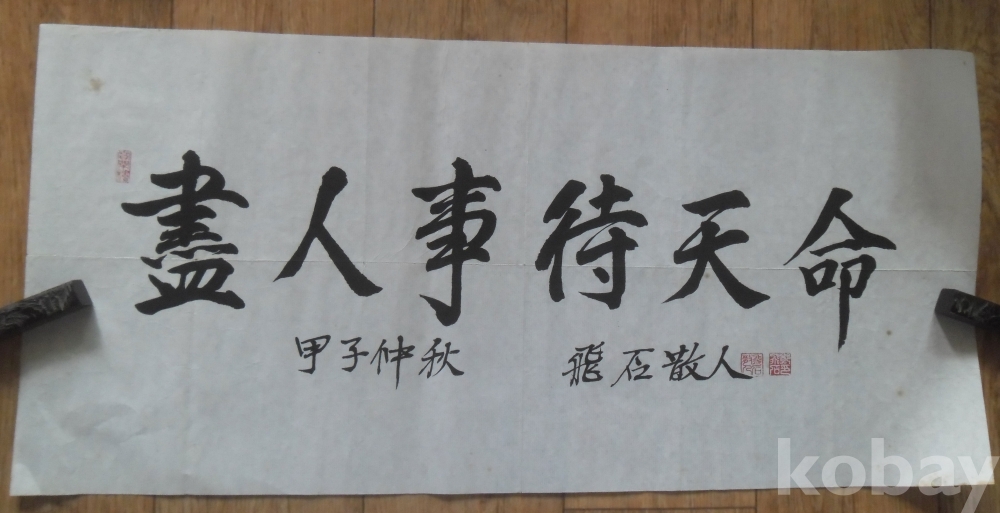 盡人事待天命
甲子仲秋 飛石散人
kobay